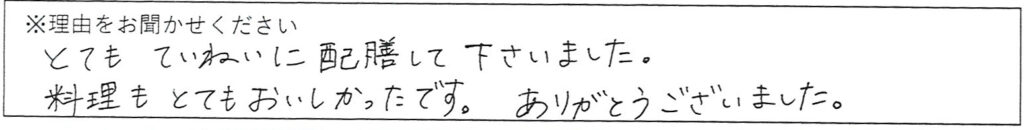 ※理由をお聞かせください
とても ていねいに 配膳して 下さいました。
料理も とてもおいしかったです。 ありがとうございました。